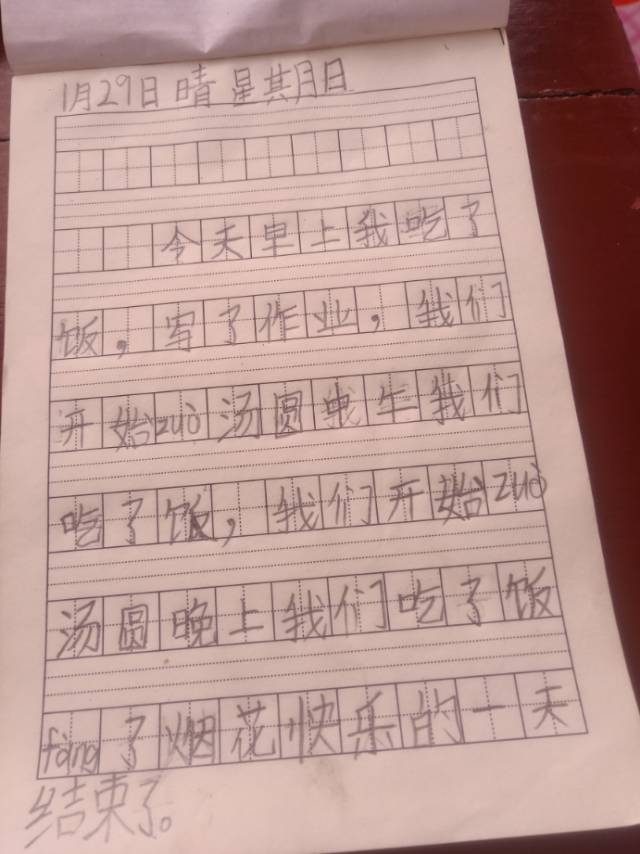 1月29日 晴 星其月日
今天早上我吃了
饭，写了作业，我们
开始zuò汤圆 年我们
吃了饭，我们开始zuò
汤圆晚上我们吃了饭
fàng了烟花快乐的一天
结束了。